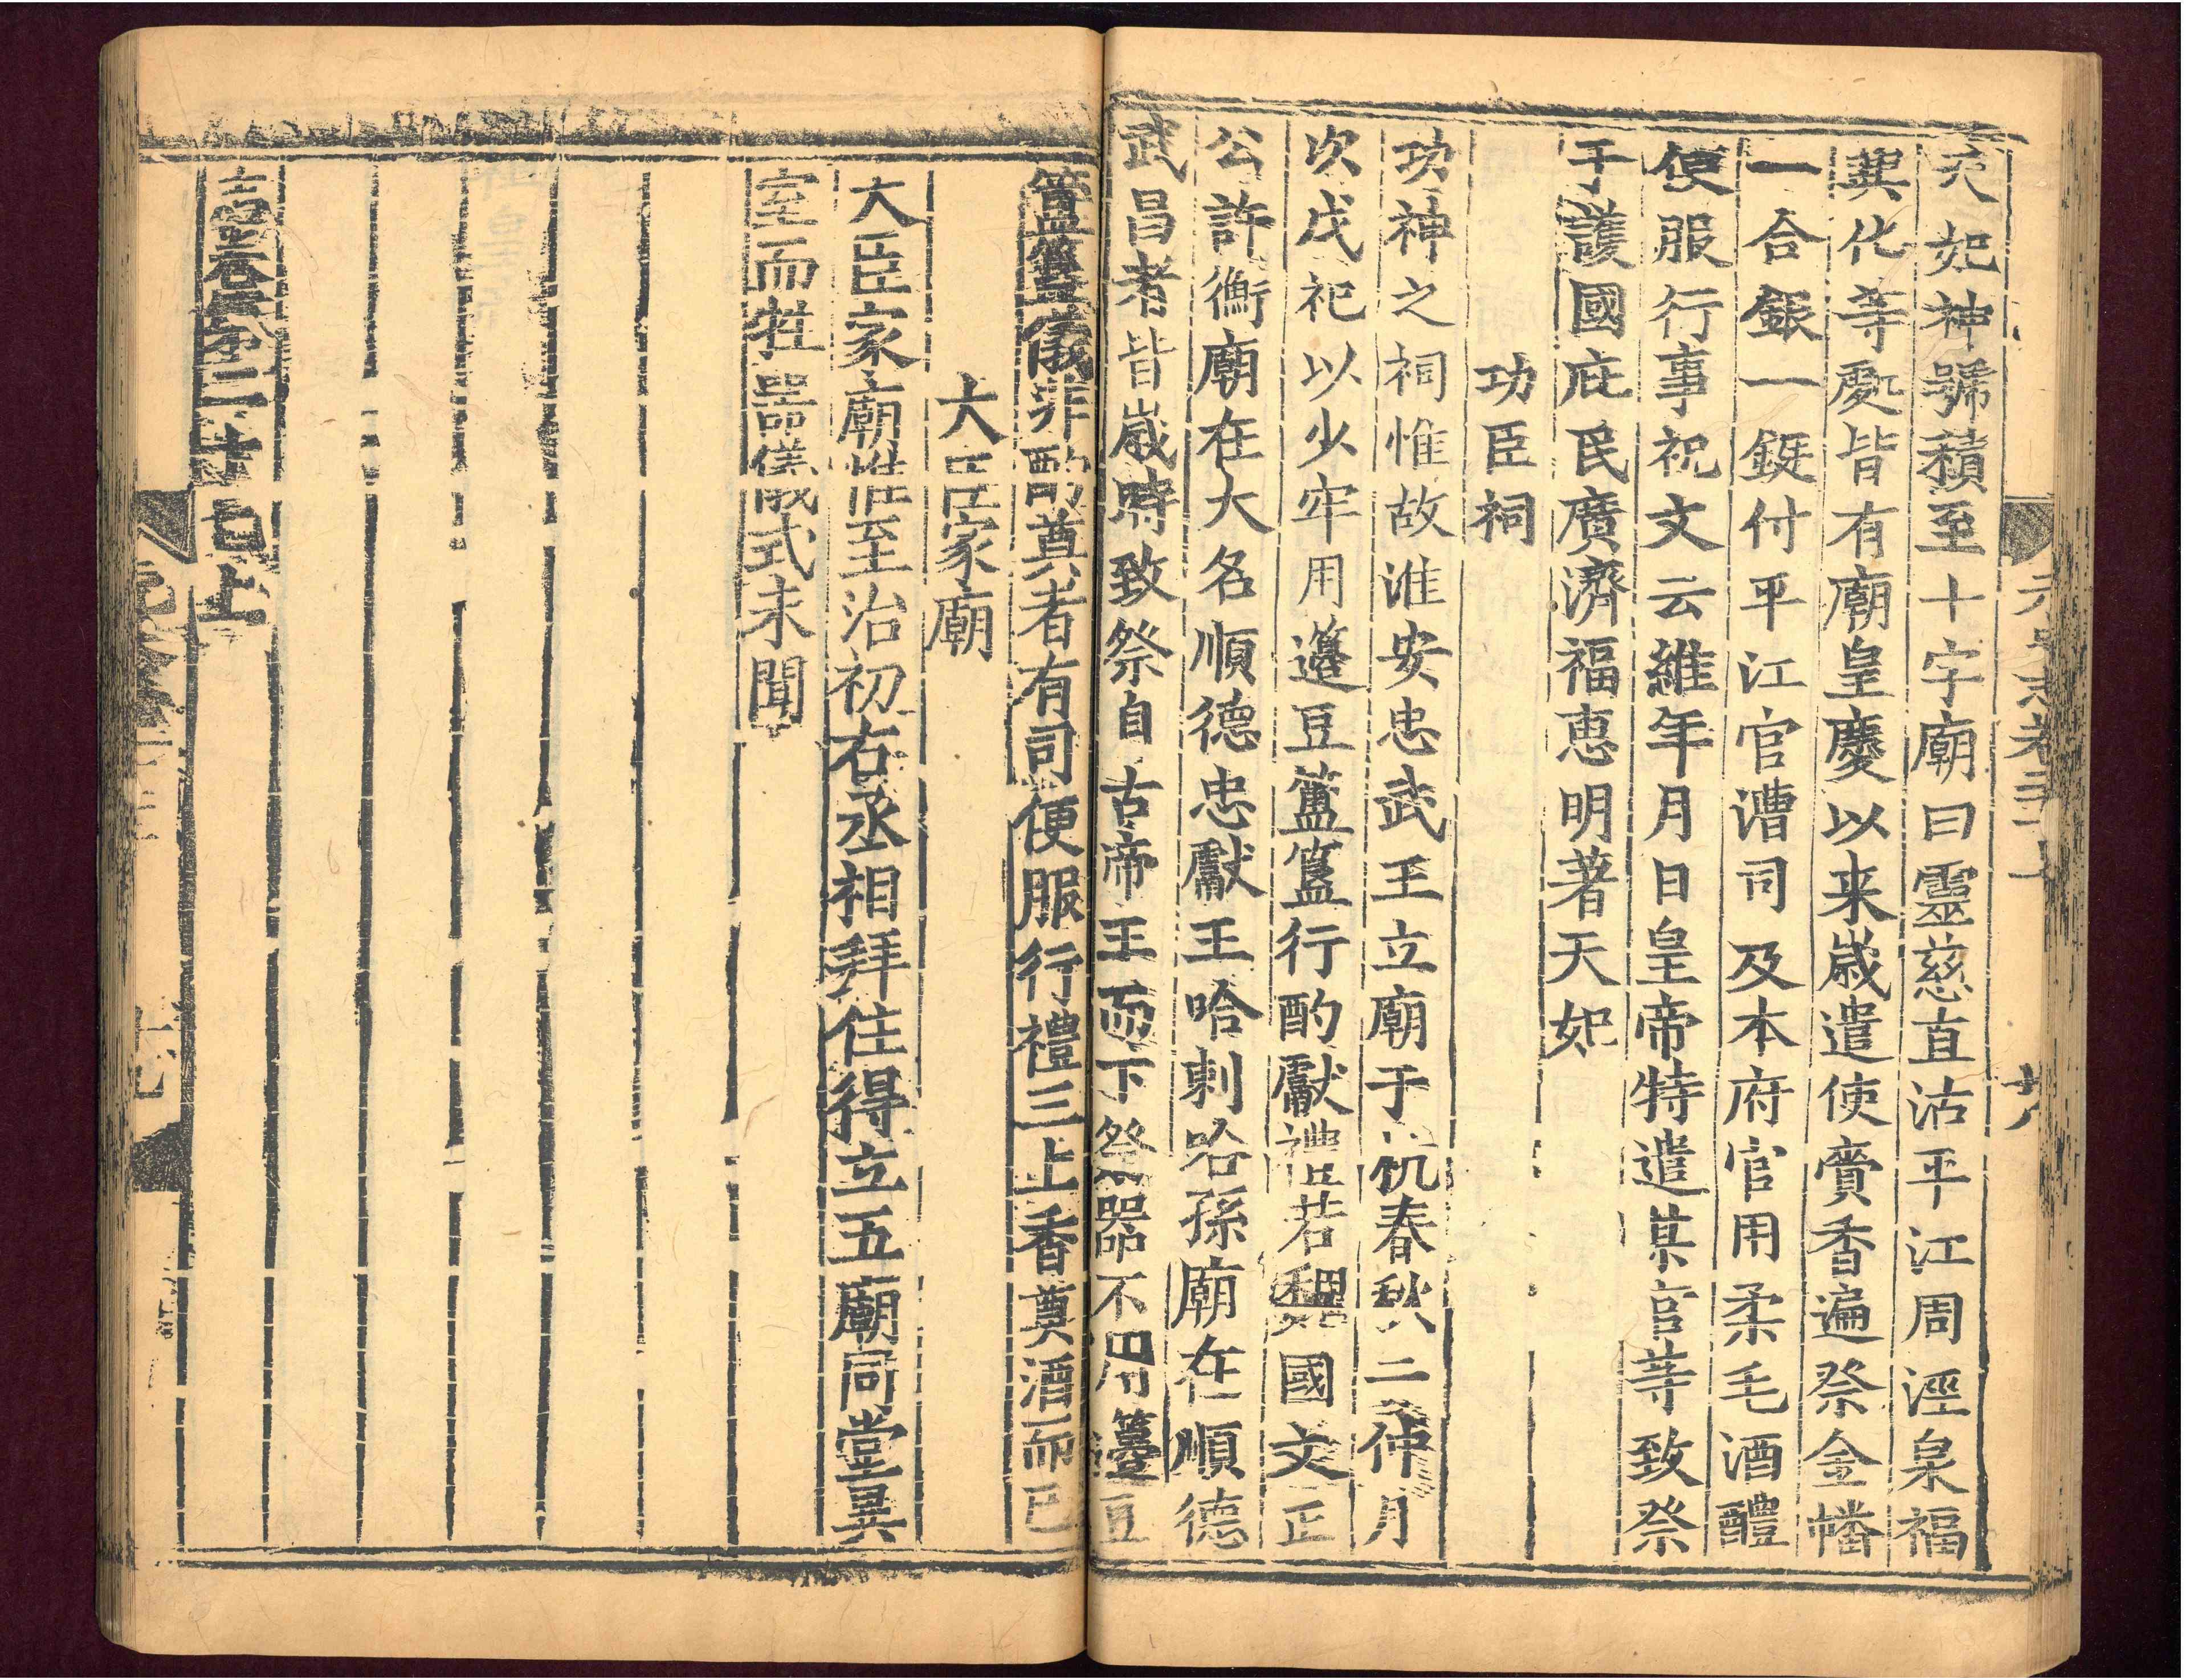 天妃神號積至十字廟曰靈慈直沽平江周涇泉福
興化等處皆有廟皇慶以来歲遣使賫香遍祭金幡
一合銀一鋌付平江官漕司及本府官用柔毛酒醴
便服行事祝文云維年月日皇帝特遣某官等致祭
于護國庇民廣濟福惠明著天妃
功臣祠
功神之祠惟故淮安忠武王立廟于杭春秋二仲月
次戊祀以少牢用籩豆簠簋行酌獻禮若魏國文正
公許衡廟在大名順德忠獻王哈剌哈孫廟在順德
武昌者皆歲時致祭自古帝王而下祭器不用籩豆
簠簋儀非酌奠者有司便服行禮三上香奠酒而已
大臣家廟
大臣家廟惟至治初右丞相拜住得立五廟同堂異
室而牲器儀式未聞
志卷第二十七上
元史志卷二十七上 廿八